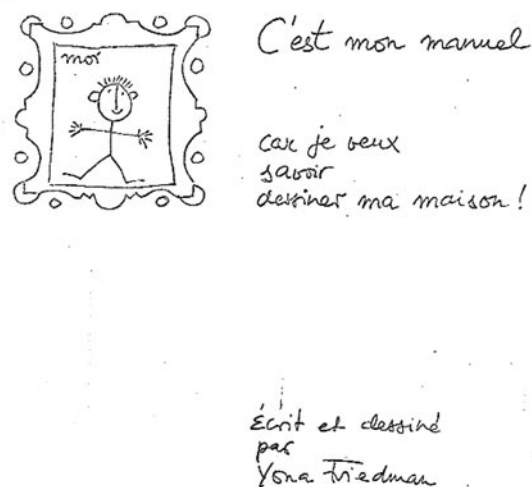 moi
C'est mon manuel
car je veux
savoir
dessiner ma maison !
Écrit et dessiné
par
Yona Friedman